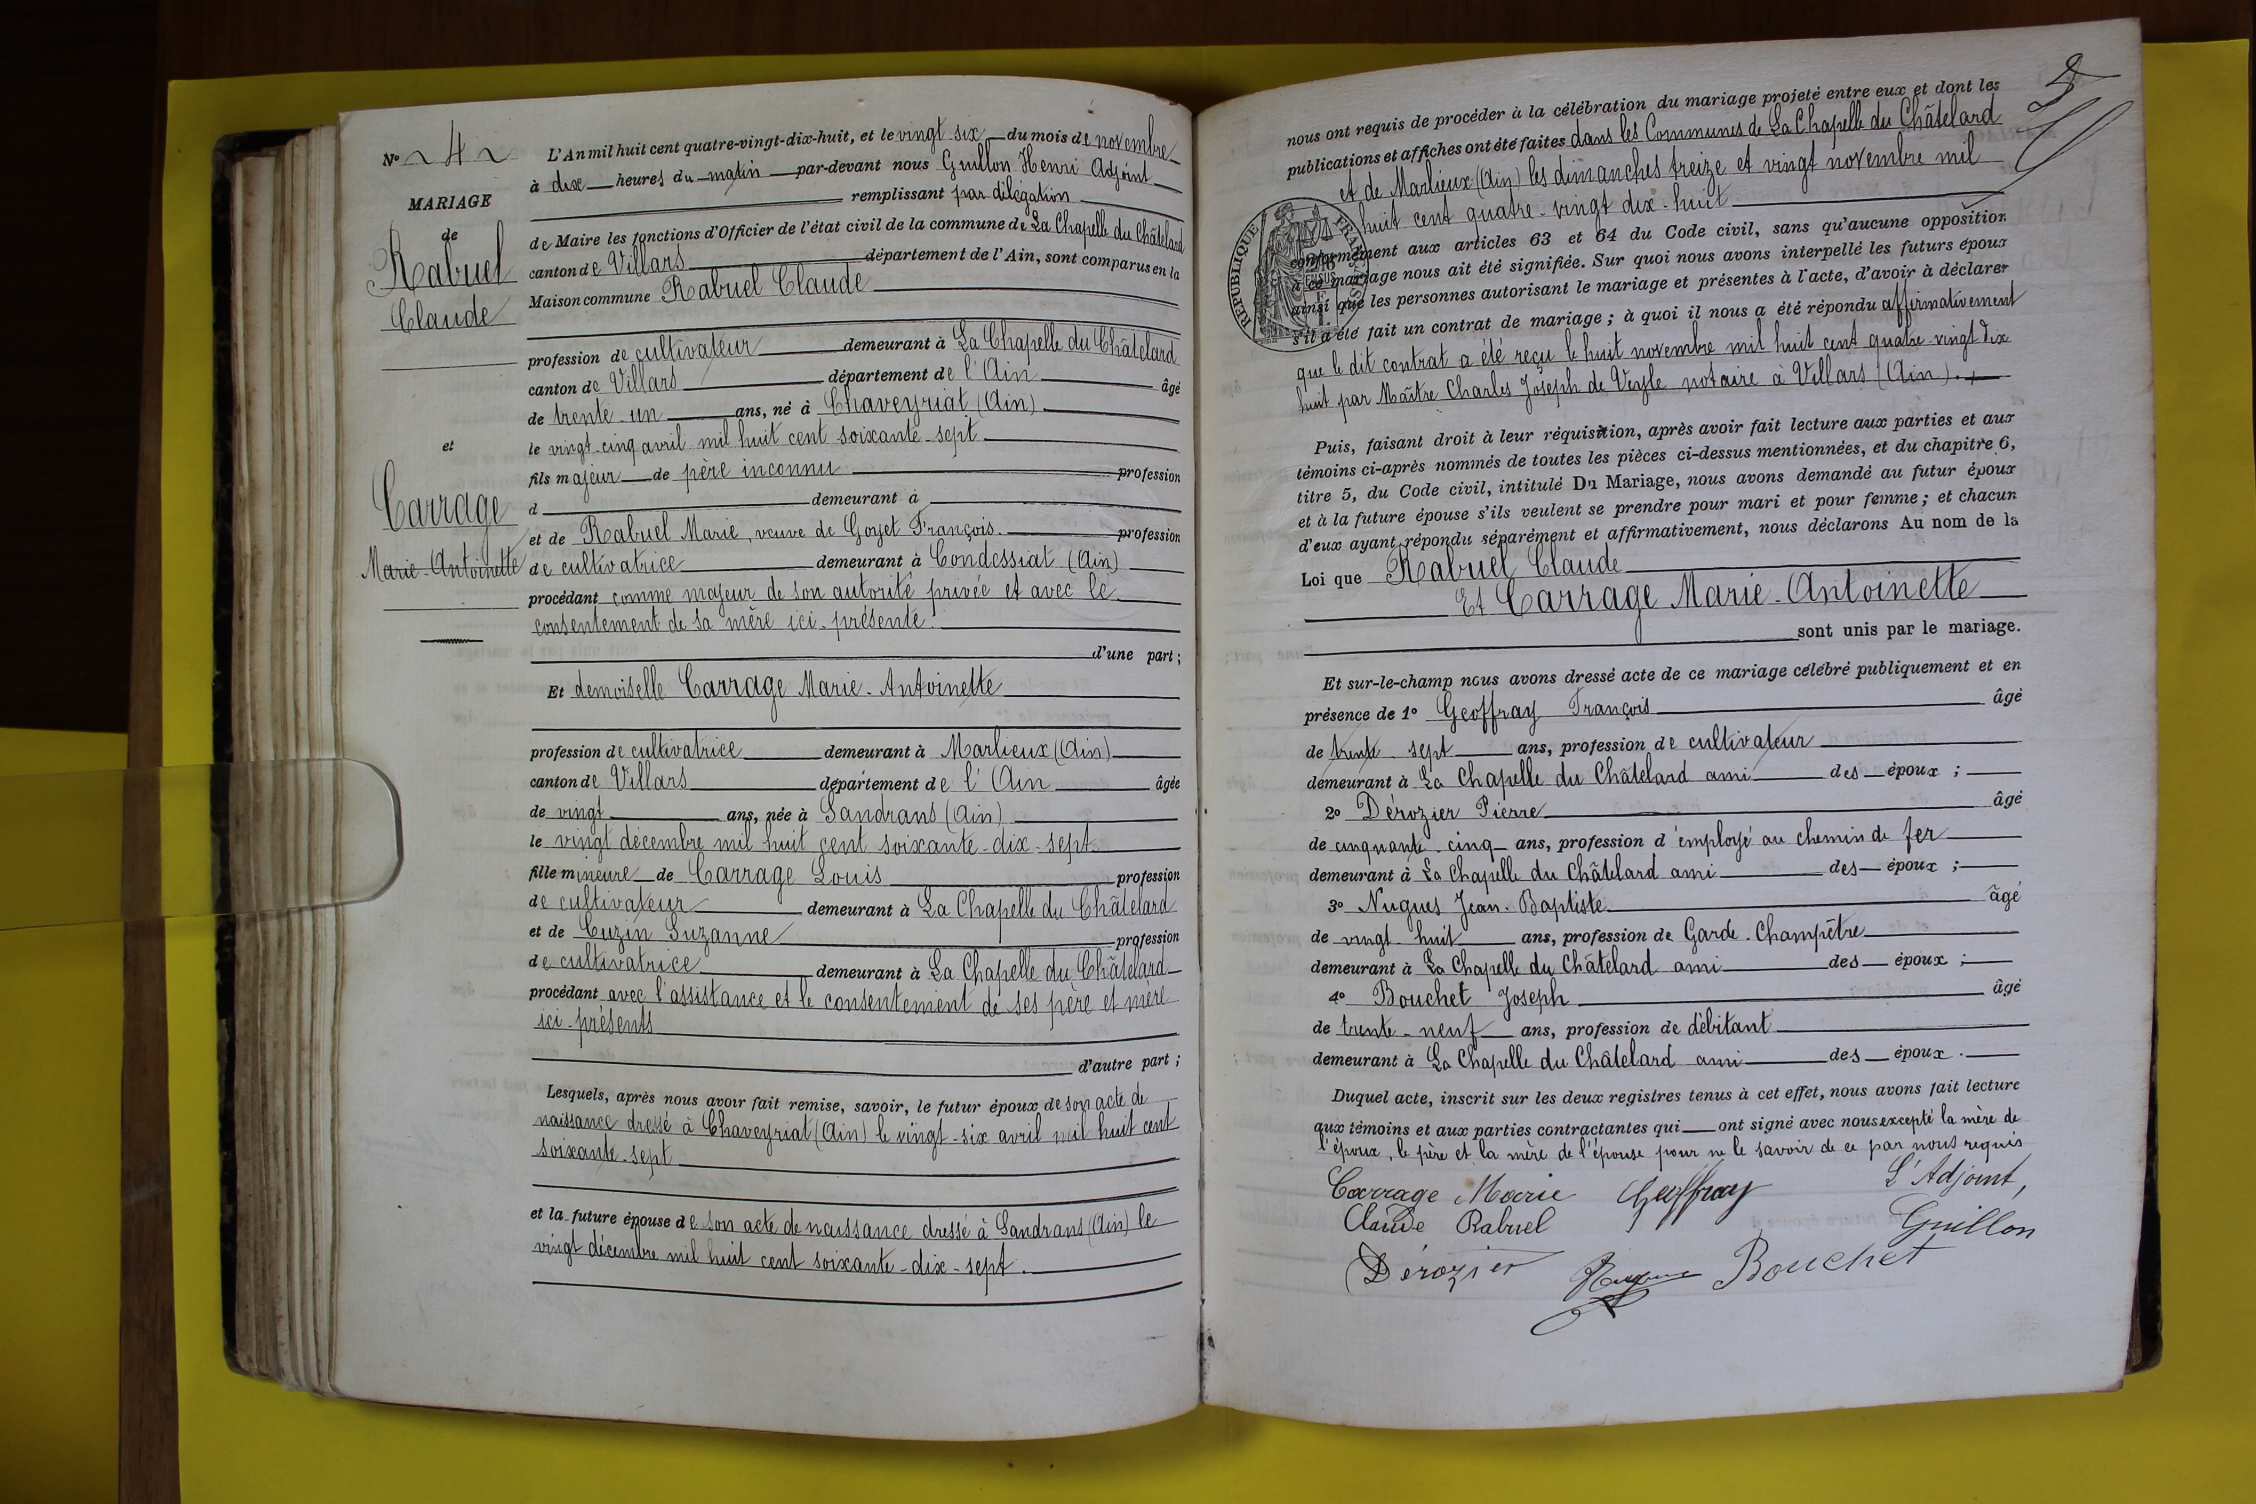 Nº 4
MARIAGE
de
Rabuel
Claude
et
Carrage
Marie-Antoinette
L'An mil huit cent quatre-vingt-dix-huit, et le vingt-six du mois de novembre
à dix heures du matin par-devant nous Guillon Henri Adjoint
remplissant par délégation
de Maire les fonctions d'Officier de l'état civil de la commune de La Chapelle du Châtelard
canton de Villars département de l'Ain, sont comparus en la
Maison commune Rabuel Claude
profession de cultivateur demeurant à La Chapelle du Châtelard
canton de Villars département de l'Ain âgé
de trente-un ans, né à Chaveyriat (Ain)
le vingt-cinq avril mil huit cent soixante-sept
fils majeur de père inconnu profession
d demeurant à
et de Rabuel Marie, veuve de Goyet François. profession
de cultivatrice demeurant à Condessiat (Ain)
procédant comme majeur de son autorité privée et avec le
consentement de sa mère ici-présente.
d'une part ;
Et demoiselle Carrage Marie-Antoinette
profession de cultivatrice demeurant à Marlieux (Ain)
canton de Villars département de l'Ain âgée
de vingt ans, née à Sandrans (Ain)
le vingt décembre mil huit cent soixante-dix-sept
fille mineure de Carrage Louis profession
de cultivateur demeurant à La Chapelle du Châtelard
et de Cuzin Suzanne profession
de cultivatrice demeurant à La Chapelle du Châtelard
procédant avec l'assistance et le consentement de ses père et mère
ici-présents
d'autre part ;
Lesquels, après nous avoir fait remise, savoir, le futur époux de son acte de
naissance dressé à Chaveyriat (Ain) le vingt-six avril mil huit cent
soixante-sept
et la future épouse de son acte de naissance dressé à Sandrans (Ain) le
vingt décembre mil huit cent soixante-dix-sept.
nous ont requis de procéder à la célébration du mariage projeté entre eux et dont les
publications et affiches ont été faites dans les Communes de La Chapelle du Châtelard
et de Marlieux (Ain) les dimanches treize et vingt novembre mil
huit cent quatre-vingt dix-huit
RÉPUBLIQUE FRANÇAISE
conformément aux articles 63 et 64 du Code civil, sans qu'aucune opposition
à ce mariage nous ait été signifiée. Sur quoi nous avons interpellé les futurs époux
ainsi que les personnes autorisant le mariage et présentes à l'acte, d'avoir à déclarer
s'il a été fait un contrat de mariage ; à quoi il nous a été répondu affirmativement
que le dit contrat a été reçu le huit novembre mil huit cent quatre-vingt dix
huit par Maître Charles Joseph de Veyle notaire à Villars (Ain).
Puis, faisant droit à leur réquisition, après avoir fait lecture aux parties et aux
témoins ci-après nommés de toutes les pièces ci-dessus mentionnées, et du chapitre 6,
titre 5, du Code civil, intitulé Du Mariage, nous avons demandé au futur époux
et à la future épouse s'ils veulent se prendre pour mari et pour femme ; et chacun
d'eux ayant répondu séparément et affirmativement, nous déclarons Au nom de la
Loi que Rabuel Claude
Et Carrage Marie-Antoinette
sont unis par le mariage.
Et sur-le-champ nous avons dressé acte de ce mariage célébré publiquement et en
présence de 1º Geoffray François âgé
de trente-sept ans, profession de cultivateur
demeurant à La Chapelle du Châtelard ami des époux ;
2º Dérozier Pierre âgé
de cinquante-cinq ans, profession d'employé au chemin de fer
demeurant à La Chapelle du Châtelard ami des époux ;
3º Nugues Jean-Baptiste âgé
de vingt-huit ans, profession de Garde-Champêtre
demeurant à La Chapelle du Châtelard ami des époux ;
4º Bouchet Joseph âgé
de trente-neuf ans, profession de débitant
demeurant à La Chapelle du Châtelard ami des époux.
Duquel acte, inscrit sur les deux registres tenus à cet effet, nous avons fait lecture
aux témoins et aux parties contractantes qui ont signé avec nous excepté la mère de
l'époux, le père et la mère de l'épouse pour ne le savoir de ce par nous requis
Carrage Marie Geoffray L'Adjoint,
Claude Rabuel Guillon
Dérozier Nugues Bouchet